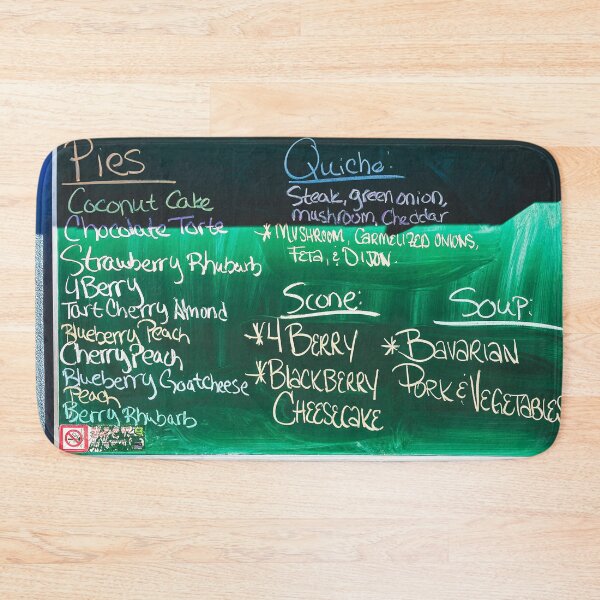 Pies
Coconut Cake
Chocolate Torte
Strawberry Rhubarb
4Berry
Tart Cherry Almond
Blueberry Peach
Cherry Peach
Blueberry Goatcheese
Peach
Berry Rhubarb
Quiche:
Steak, green onion,
mushroom, Cheddar
*MUSHROOM, CARMELIZED ONIONS,
FETA, & DIJON.
SCONE:
*4 BERRY
*BLACKBERRY
CHEESECAKE
SOUP:
*BAVARIAN
PORK & VEGETABLES